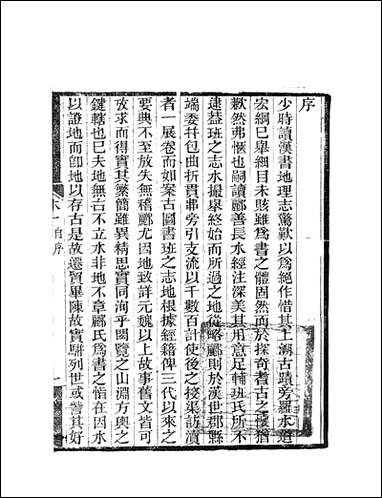 序
少時讀漢書地理志驚歎以爲絕作惜其土溯古蹟旁羅水道
宏綱已舉細目未賅雖爲書之體固然而於探奇耆古之懷猶
歉然弗愜也嗣讀酈善長水經注深美其用意足輔班氏所不
逮葢班之志水撮舉終始而所過之地從略酈則於漢世郡縣
端委幷包曲折貫弗旁引支流以千數百計使後之接渠訪瀆
者一展卷而如案古圖書班之志地根據經籍俾三代以來之
要典不至放失無稽酈尤因地致詳元魏以上故事舊文皆可
攷求而得實其繁簡雖異精思實同洵乎閱覽之山淵方輿之
鍵轄也已夫地無古不立水非地不章酈氏爲書之恉在因水
以證地而卽地以存古是故遠貿畢陳故實駢列世或訾其好
水一
自序